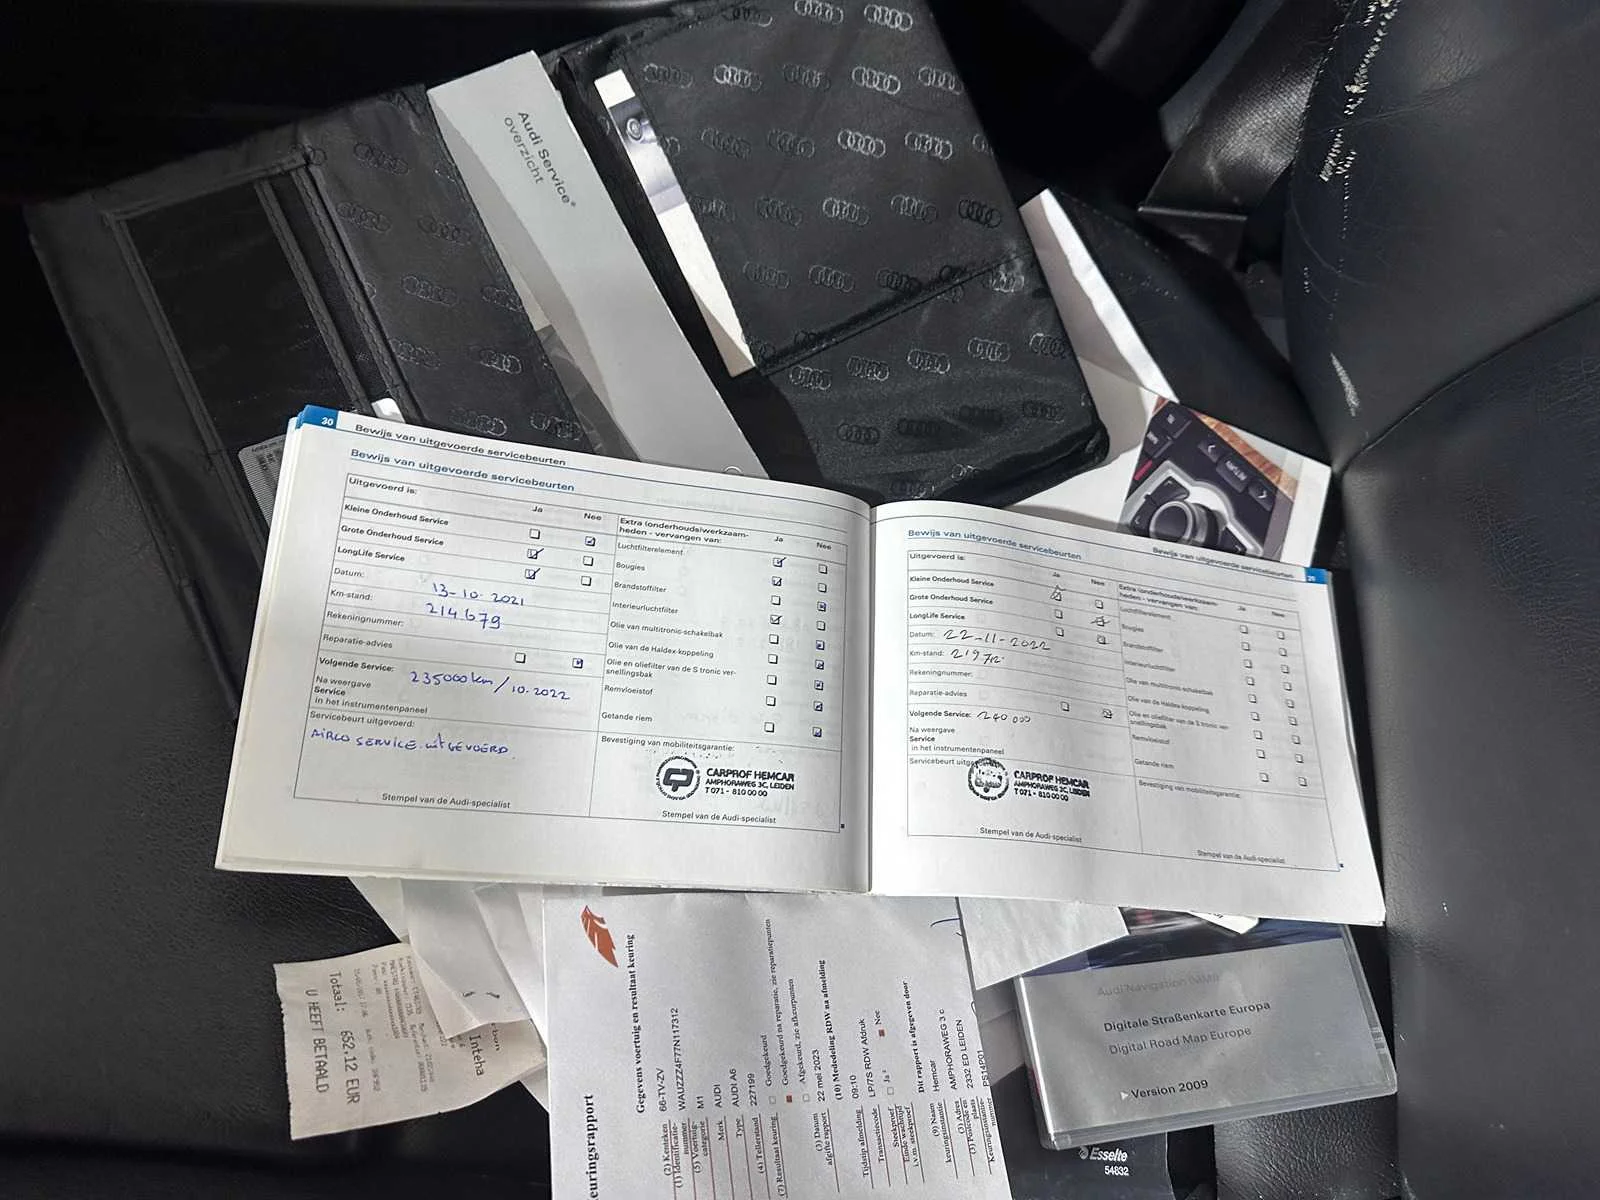 Audi Service®
overzicht
30
Bewijs van uitgevoerde servicebeurten
Bewijs van uitgevoerde servicebeurten
Uitgevoerd is:
Ja
Nee
Kleine Onderhoud Service
Grote Onderhoud Service
LongLife Service
Datum: 13-10-2021
Km-stand: 214679
Rekeningnummer:
Reparatie-advies
Volgende Service: 235000km/10-2022
Na weergave
Service
in het instrumentenpaneel
Servicebeurt uitgevoerd:
AIRCO SERVICE UITGEVOERD
Stempel van de Audi-specialist
Extra (onderhouds)werkzaam-
heden - vervangen van:
Ja
Nee
Luchtfilterelement
Bougies
Brandstoffilter
Interieurluchtfilter
Olie van multitronic-schakelbak
Olie van de Haldex-koppeling
Olie en oliefilter van de S tronic ver-
snellingsbak
Remvloeistof
Getande riem
Bevestiging van mobiliteitsgarantie:
CARPROF HEMCAR
AMPHORAWEG 3C, LEIDEN
T 071 - 810 00 00
Stempel van de Audi-specialist
Bewijs van uitgevoerde servicebeurten
Bewijs van uitgevoerde servicebeurten
Uitgevoerd is:
Ja
Nee
Kleine Onderhoud Service
Grote Onderhoud Service
LongLife Service
Datum: 22-11-2022
Km-stand:
Rekeningnummer:
Reparatie-advies
Volgende Service: 240 000
Na weergave
Service
in het instrumentenpaneel
Servicebeurt
CARPROF HEMCAR
AMPHORAWEG 3C, LEIDEN
T 071 - 810 00 00
Stempel van de Audi-specialist
Extra (onderhouds)werkzaam-
heden - vervangen van:
Ja
Nee
Luchtfilterelement
Bougies
Brandstoffilter
Interieurluchtfilter
Olie van multitronic-schakelbak
Olie van de Haldex-koppeling
Olie en oliefilter van de S tronic ver-
snellingsbak
Remvloeistof
Getande riem
Bevestiging van mobiliteitsgarantie:
Stempel van de Audi-specialist
RETURN
Totaal: 652,12 EUR
U HEEFT BETAALD
euringsrapport
Gegevens voertuig en resultaat keuring
(2) Kenteken 66-TV-ZV
(1) Identificatie-
nummer WAUZZZ4F77N117312
(5) Voertuig-
categorie M1
Merk AUDI
Type AUDI A6
(4) Tellerstand 227199
(7) Resultaat keuring
Goedgekeurd
Goedgekeurd na reparatie, zie reparatiepunten
Afgekeurd, zie afkeurpunten
(3) Datum
afgifte rapport 22 mei 2023
(10) Mededeling RDW na afmelding
Tijdstip afmelding 09:10
Transactiecode LPI7S RDW Afdruk
Steekproef Ja Nee
Eindе wachttijd
i.v.m. steekproef
Dit rapport is afgegeven door
(9) Naam
keuringsinstantie Hemcar
(3) Adres AMPHORAWEG 3 c
(3) Postcode en
plaats 2332 ED LEIDEN
Keuringsinstantie-
nummer PS14P01
Audi Navigation
Digitale Straßenkarte Europa
Digital Road Map Europe
Version 2009
Esselte
54832